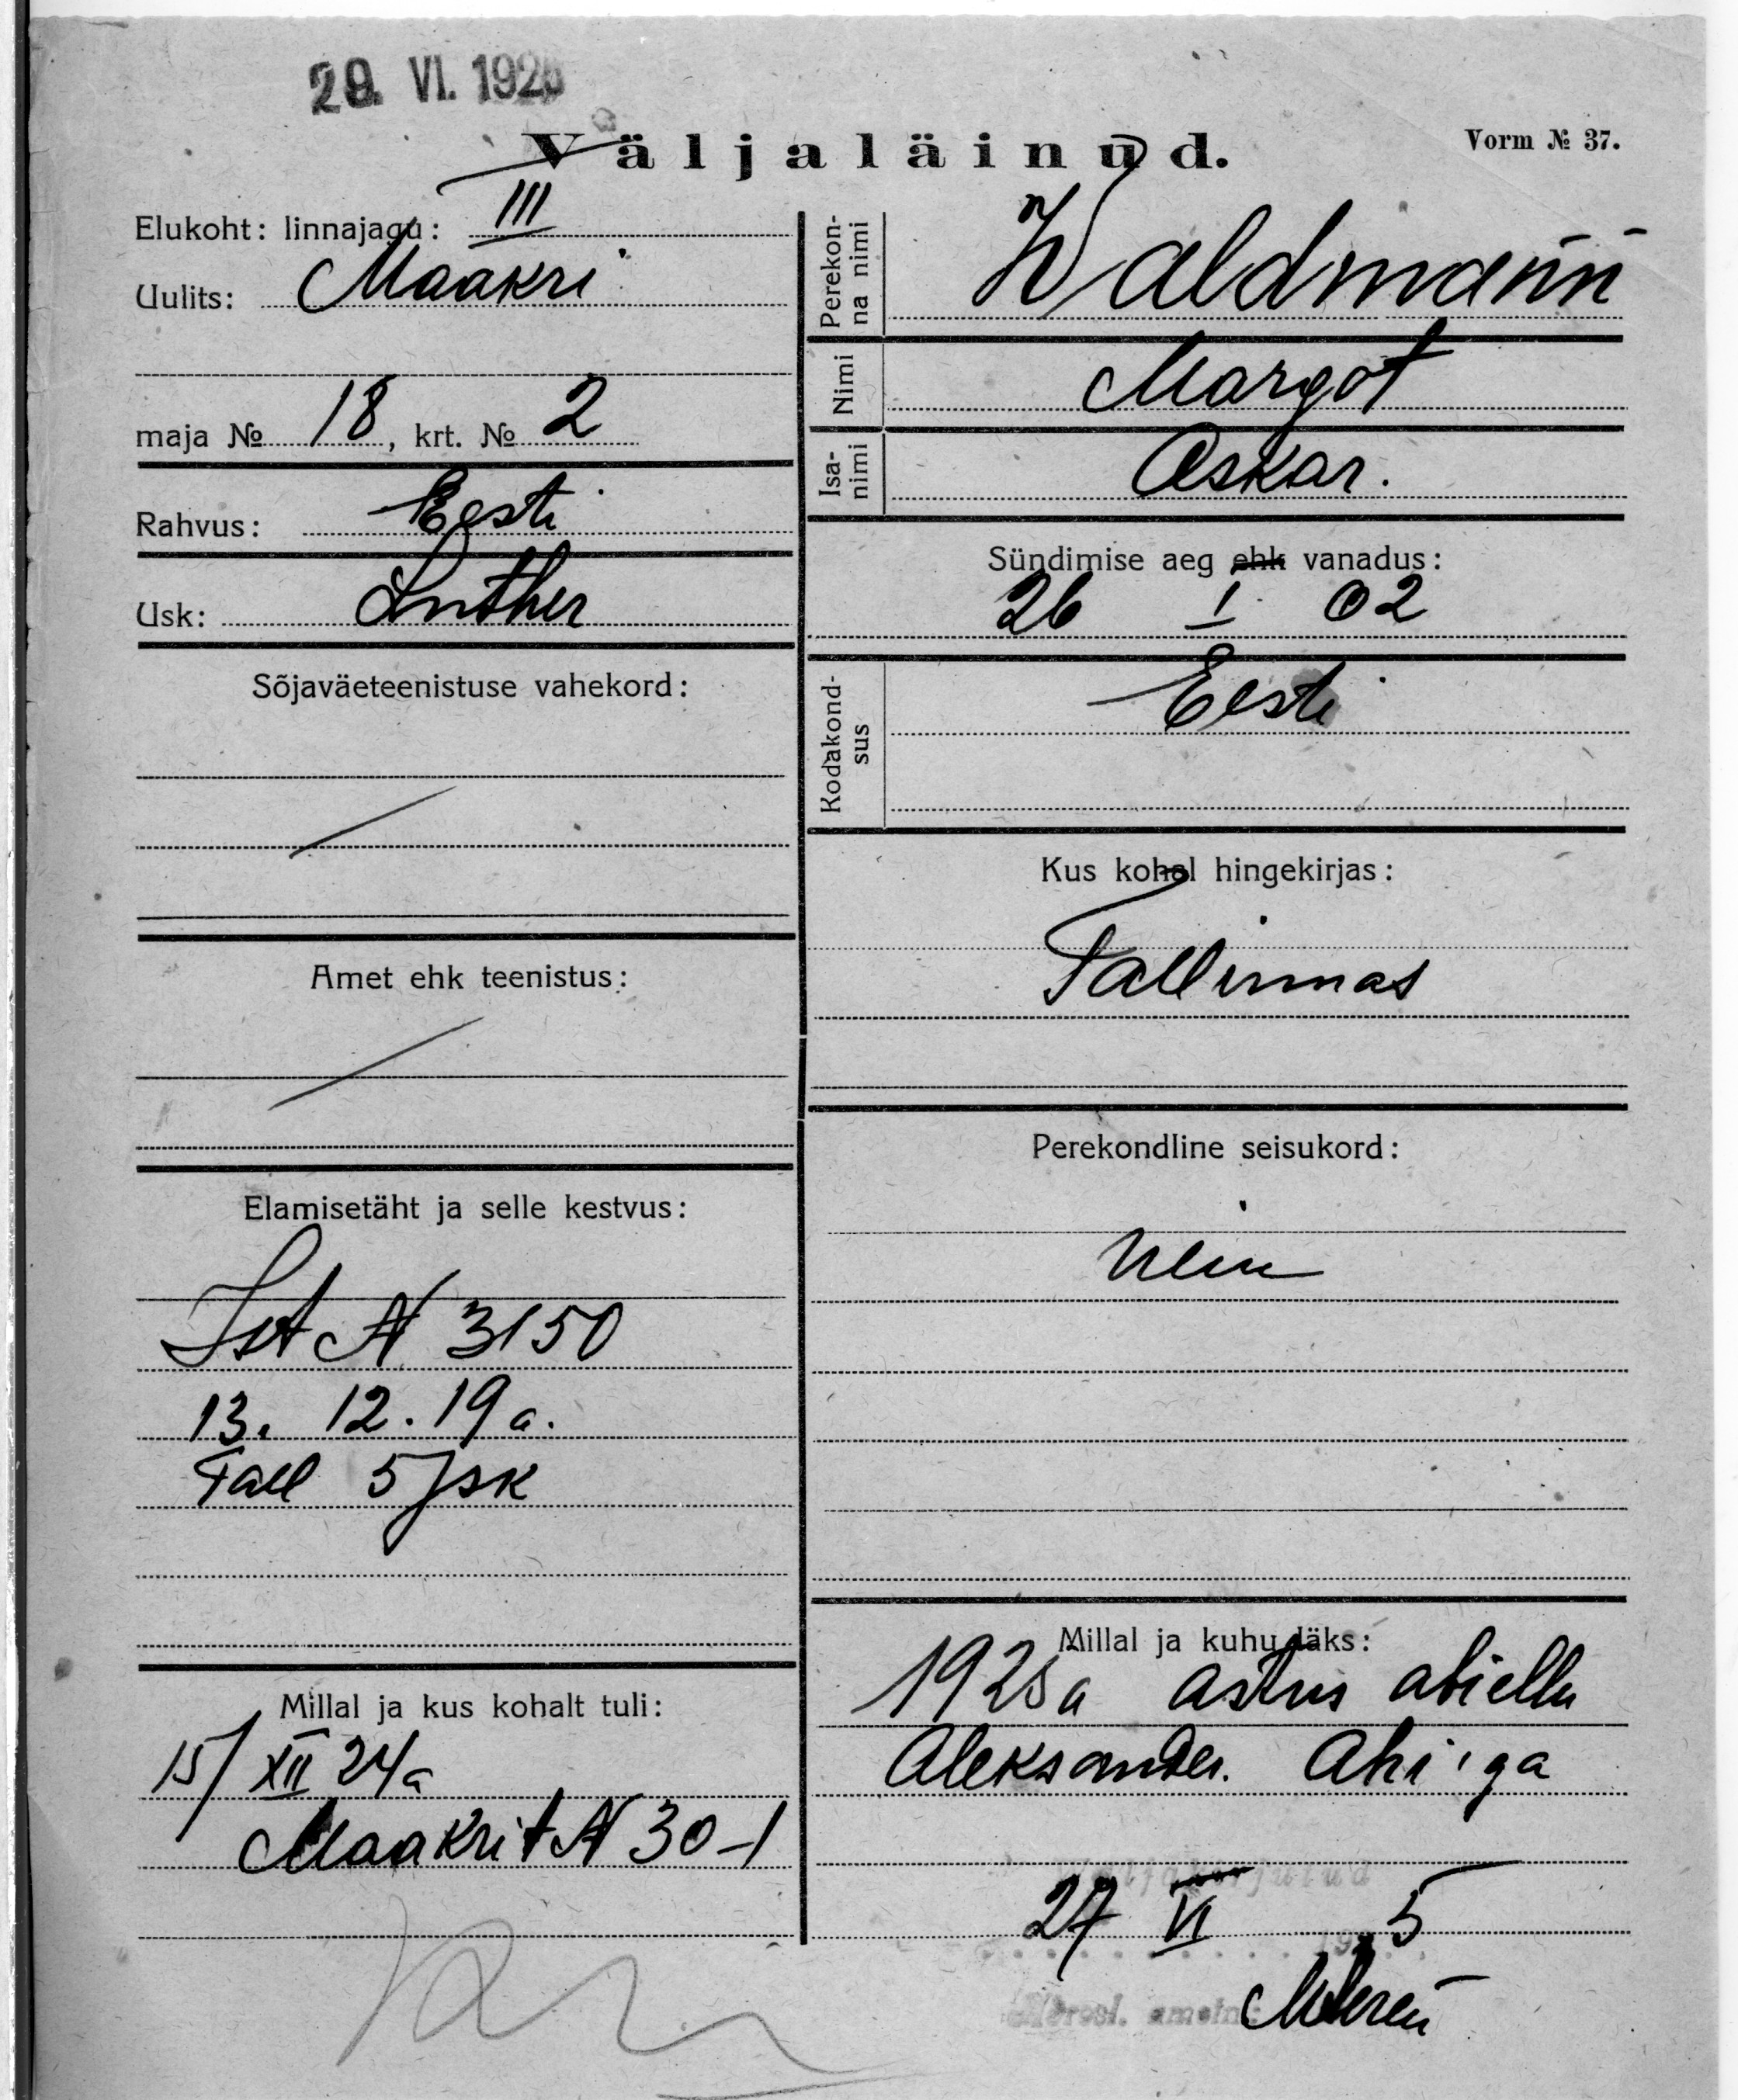 29. VI. 1925
Väljaläinud.
Vorm № 37.
Elukoht: linnajagu: III
Uulits: Maakri
maja № 18, krt. № 2
Rahvus: Eesti
Usk: Luther
Sõjaväeteenistuse vahekord:
Amet ehk teenistus:
Elamisetäht ja selle kestvus:
Ist N 3150
13. 12. 19 a.
Tall 5 Jsk
Millal ja kus kohalt tuli:
15/XII 24 a
Maakri t N 30-1
Perekonna nimi Waldmann
Nimi Margot
Isanimi Oskar.
Sündimise aeg ehk vanadus:
26 I 02
Kodakondsus Eesti
Kus kohal hingekirjas:
Tallinnas
Perekondline seisukord:
neiu
Millal ja kuhu läks:
1925 a astus abiellu
Aleksander. Ahi'ga
27 VI 5